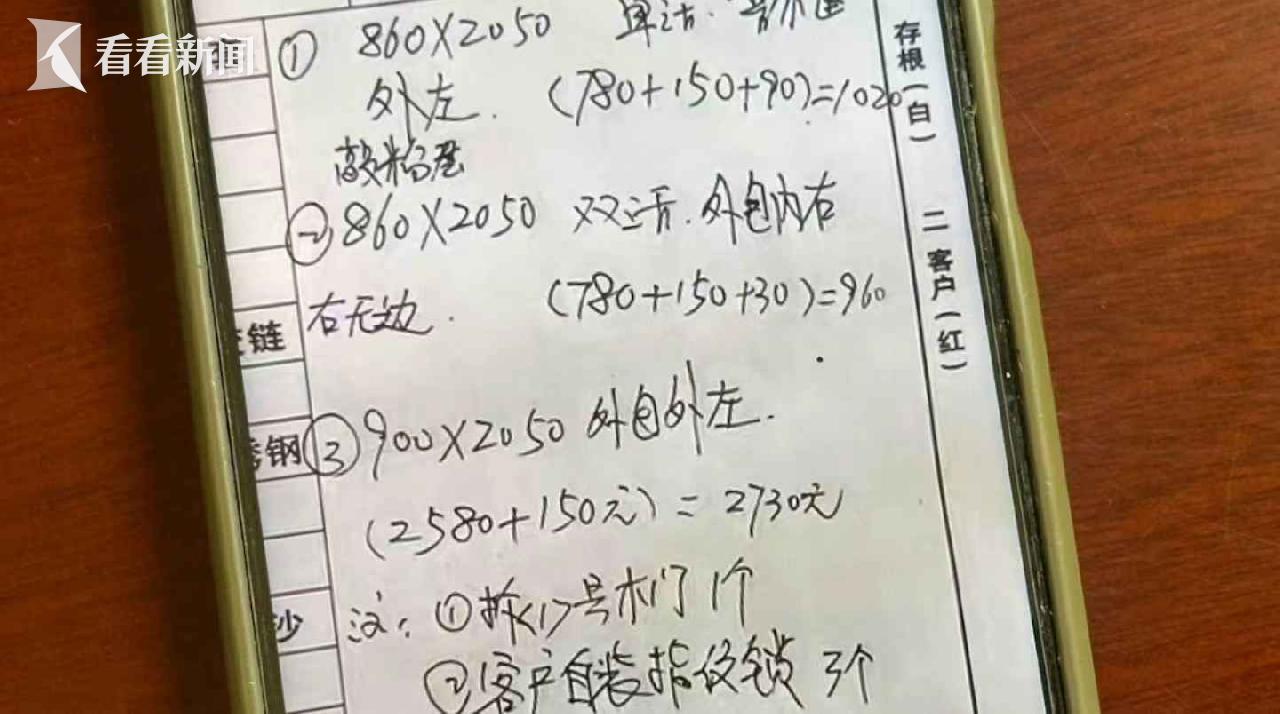 看看新闻
① 860×2050
外左. (780+150+90)=1020
② 860×2050 双活. 外包内右
右无边. (780+150+30)=960
③ 900×2050 外包外左.
(2580+150元) = 2730元
注: ①拆<1>号木门1个
②客户自装指纹锁3个
链
钢
沙
存根(白)
二客户(红)